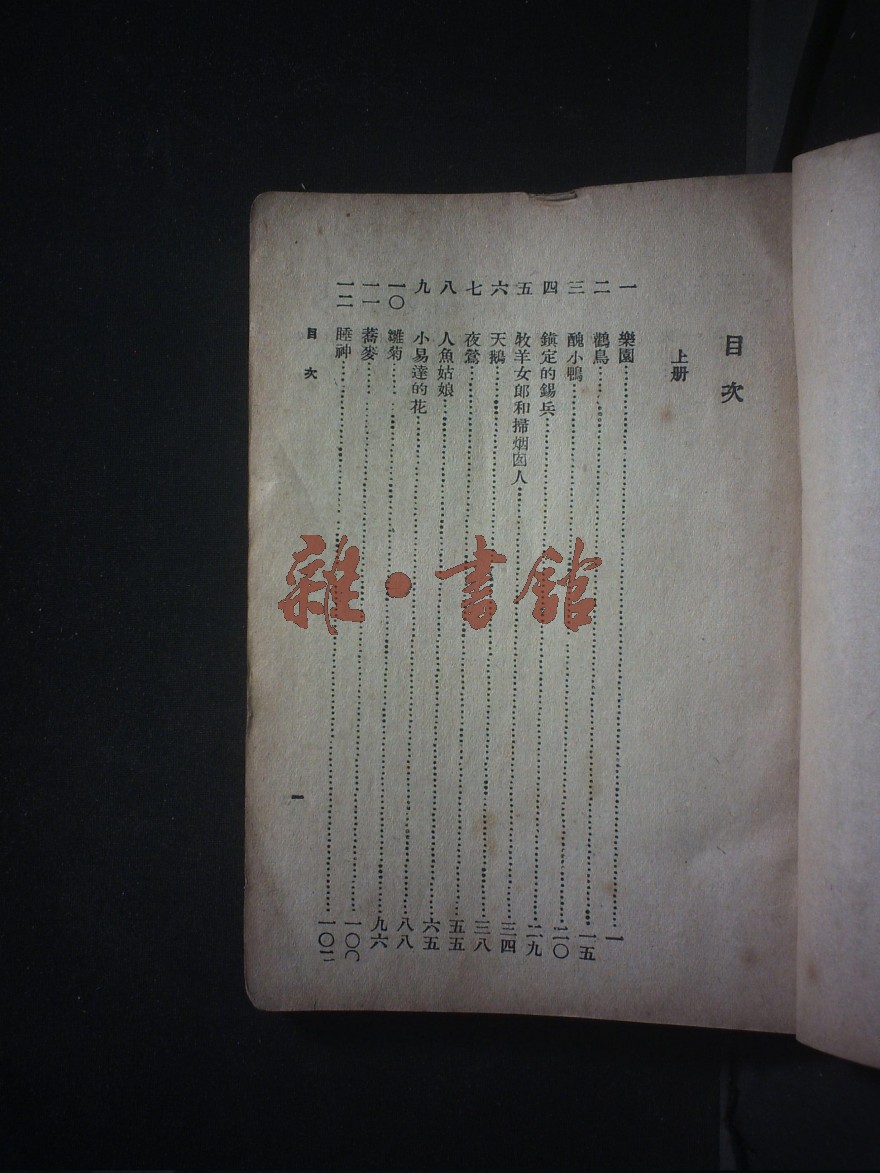 目次
上册
一 樂園……一
二 鸛鳥……一五
三 醜小鴨……二〇
四 鎭定的錫兵……二九
五 牧羊女郎和掃烟囱人……三四
六 天鵝……三八
七 夜鶯……五五
八 人魚姑娘……六五
九 小易達的花……八八
一〇 雛菊……九六
一一 蕎麥……一〇〇
一二 睡神……
目次
一
雜·書館